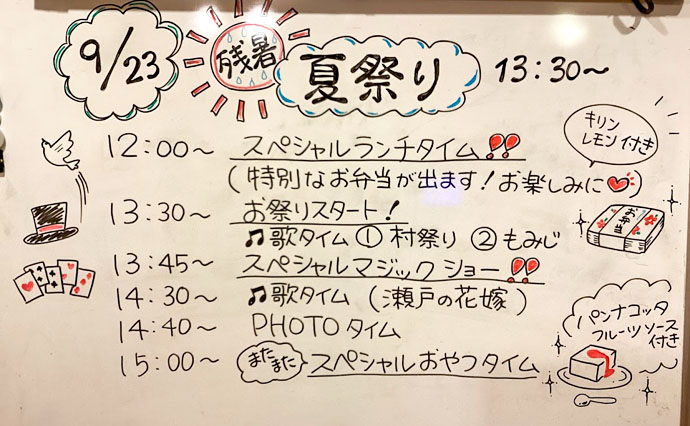 9/23 残暑 夏祭り 13:30～
12:00～ スペシャルランチタイム!!
(特別なお弁当が出ます!お楽しみに♥)
キリン
レモン付き
13:30～ お祭りスタート!
お弁当
♫歌タイム ① 村祭り ② もみじ
13:45～ スペシャルマジックショー!!
14:30～ ♫歌タイム (瀬戸の花嫁)
14:40～ PHOTOタイム
15:00～ またまた スペシャルおやつタイム
パンナコッタ
フルーツソース
付き